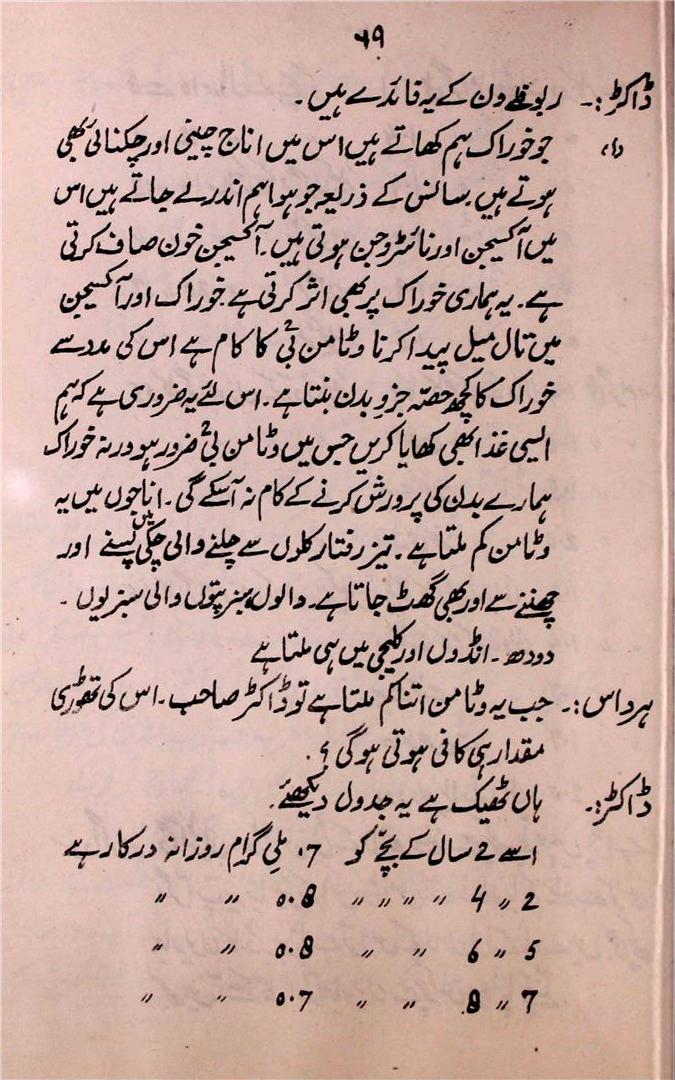 ۶۹
ڈاکٹر:۔ ربوفلے ون کے یہ فائدے ہیں۔
(۱) جو خوراک ہم کھاتے ہیں اس میں اناج چینی اور چکنائی بھی
ہوتے ہیں۔ سانس کے ذریعہ جو ہوا ہم اندر لے جاتے ہیں اس
میں آکسیجن اور نائٹروجن ہوتی ہیں۔ آکسیجن خون صاف کرتی
ہے۔ یہ ہماری خوراک پر بھی اثر کرتی ہے۔ خوراک اور آکسیجن
میں تال میل پیدا کرنا وٹامن بی۲ کا کام ہے اس کی مدد سے
خوراک کا کچھ حصّہ جزوِ بدن بنتا ہے۔ اس لئے یہ ضروری ہے کہ ہم
ایسی غذا بھی کھایا کریں جس میں وٹامن بی۲ ضرور ہو ورنہ خوراک
ہمارے بدن کی پرورش کرنے کے کام نہ آسکے گی۔ اناجوں میں یہ
وٹامن کم ملتا ہے۔ تیز رفتار کلوں سے چلنے والی چکی میں پسنے اور
چھننے سے اور بھی گھٹ جاتا ہے۔ دالوں، سبز پتوں والی سبزیوں۔
دودھ۔ انڈوں اور کلیجی میں ہی ملتا ہے
ہرداس:۔ جب یہ وٹامن اتنا کم ملتا ہے تو ڈاکٹر صاحب۔ اس کی تھوڑی
مقدار ہی کافی ہوتی ہوگی؟
ڈاکٹر:۔ ہاں ٹھیک ہے یہ جدول دیکھئے۔
1 سے 2 سال کے بچّے کو 0.7 ملی گرام روزانہ درکار ہے
2 〃 4 〃 〃 〃 〃 0.8 〃 〃
5 〃 6 〃 〃 0.8 〃 〃
7 〃 8 〃 〃 0.7 〃 〃